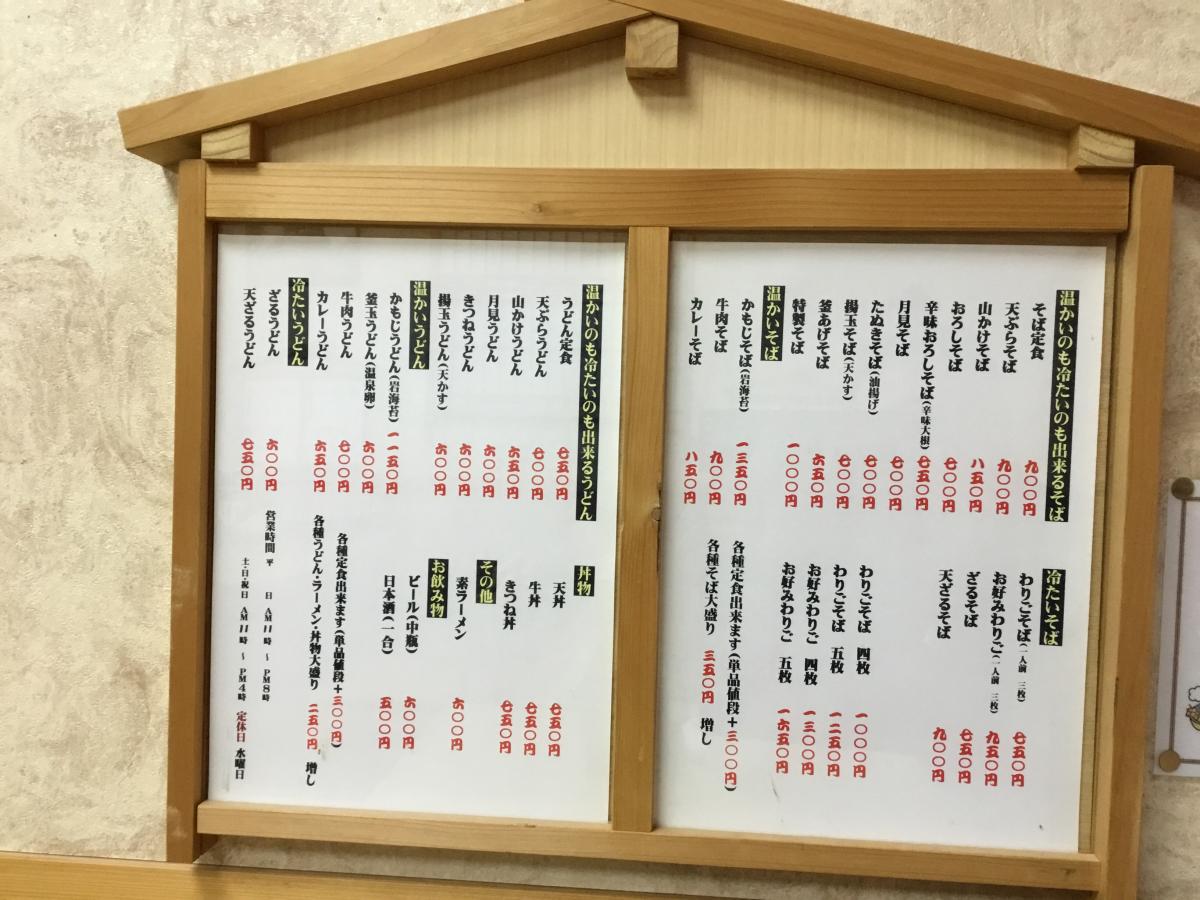 温かいのも冷たいのも出来るそば
そば定食 九〇〇円
天ぷらそば 九〇〇円
山かけそば 八五〇円
おろしそば 七〇〇円
辛味おろしそば(辛味大根) 七五〇円
月見そば 七〇〇円
たぬきそば(油揚げ) 七〇〇円
揚玉そば(天かす) 七〇〇円
釜あげそば 六五〇円
特製そば 一〇〇〇円
温かいそば
かもじそば(岩海苔) 一三五〇円
牛肉そば 九〇〇円
カレーそば 八五〇円
冷たいそば
わりごそば(一人前 三枚) 七五〇円
お好みわりご(一人前 三枚) 九五〇円
ざるそば 七五〇円
天ざるそば 九〇〇円
わりごそば 四枚 一〇〇〇円
わりごそば 五枚 一二五〇円
お好みわりご 四枚 一三〇〇円
お好みわりご 五枚 一六五〇円
各種定食出来ます(単品値段+三〇〇円)
各種そば大盛り 三五〇円 増し
温かいのも冷たいのも出来るうどん
うどん定食 七五〇円
天ぷらうどん 七〇〇円
山かけうどん 六五〇円
月見うどん 六〇〇円
きつねうどん 六〇〇円
揚玉うどん(天かす) 六〇〇円
温かいうどん
かもじうどん(岩海苔) 一一五〇円
釜玉うどん(温泉卵) 六〇〇円
牛肉うどん 七〇〇円
カレーうどん 六五〇円
冷たいうどん
ざるうどん 六〇〇円
天ざるうどん 七五〇円
丼物
天丼 七五〇円
牛丼 七五〇円
きつね丼 七五〇円
その他
素ラーメン 六〇〇円
お飲み物
ビール(中瓶) 六〇〇円
日本酒(一合) 五〇〇円
各種定食出来ます(単品値段+三〇〇円)
各種うどん・ラーメン・丼物大盛り 二五〇円 増し
営業時間 平 日 AM11時 ~ PM8時
土・日・祝日 AM11時 ~ PM4時 定休日 水曜日